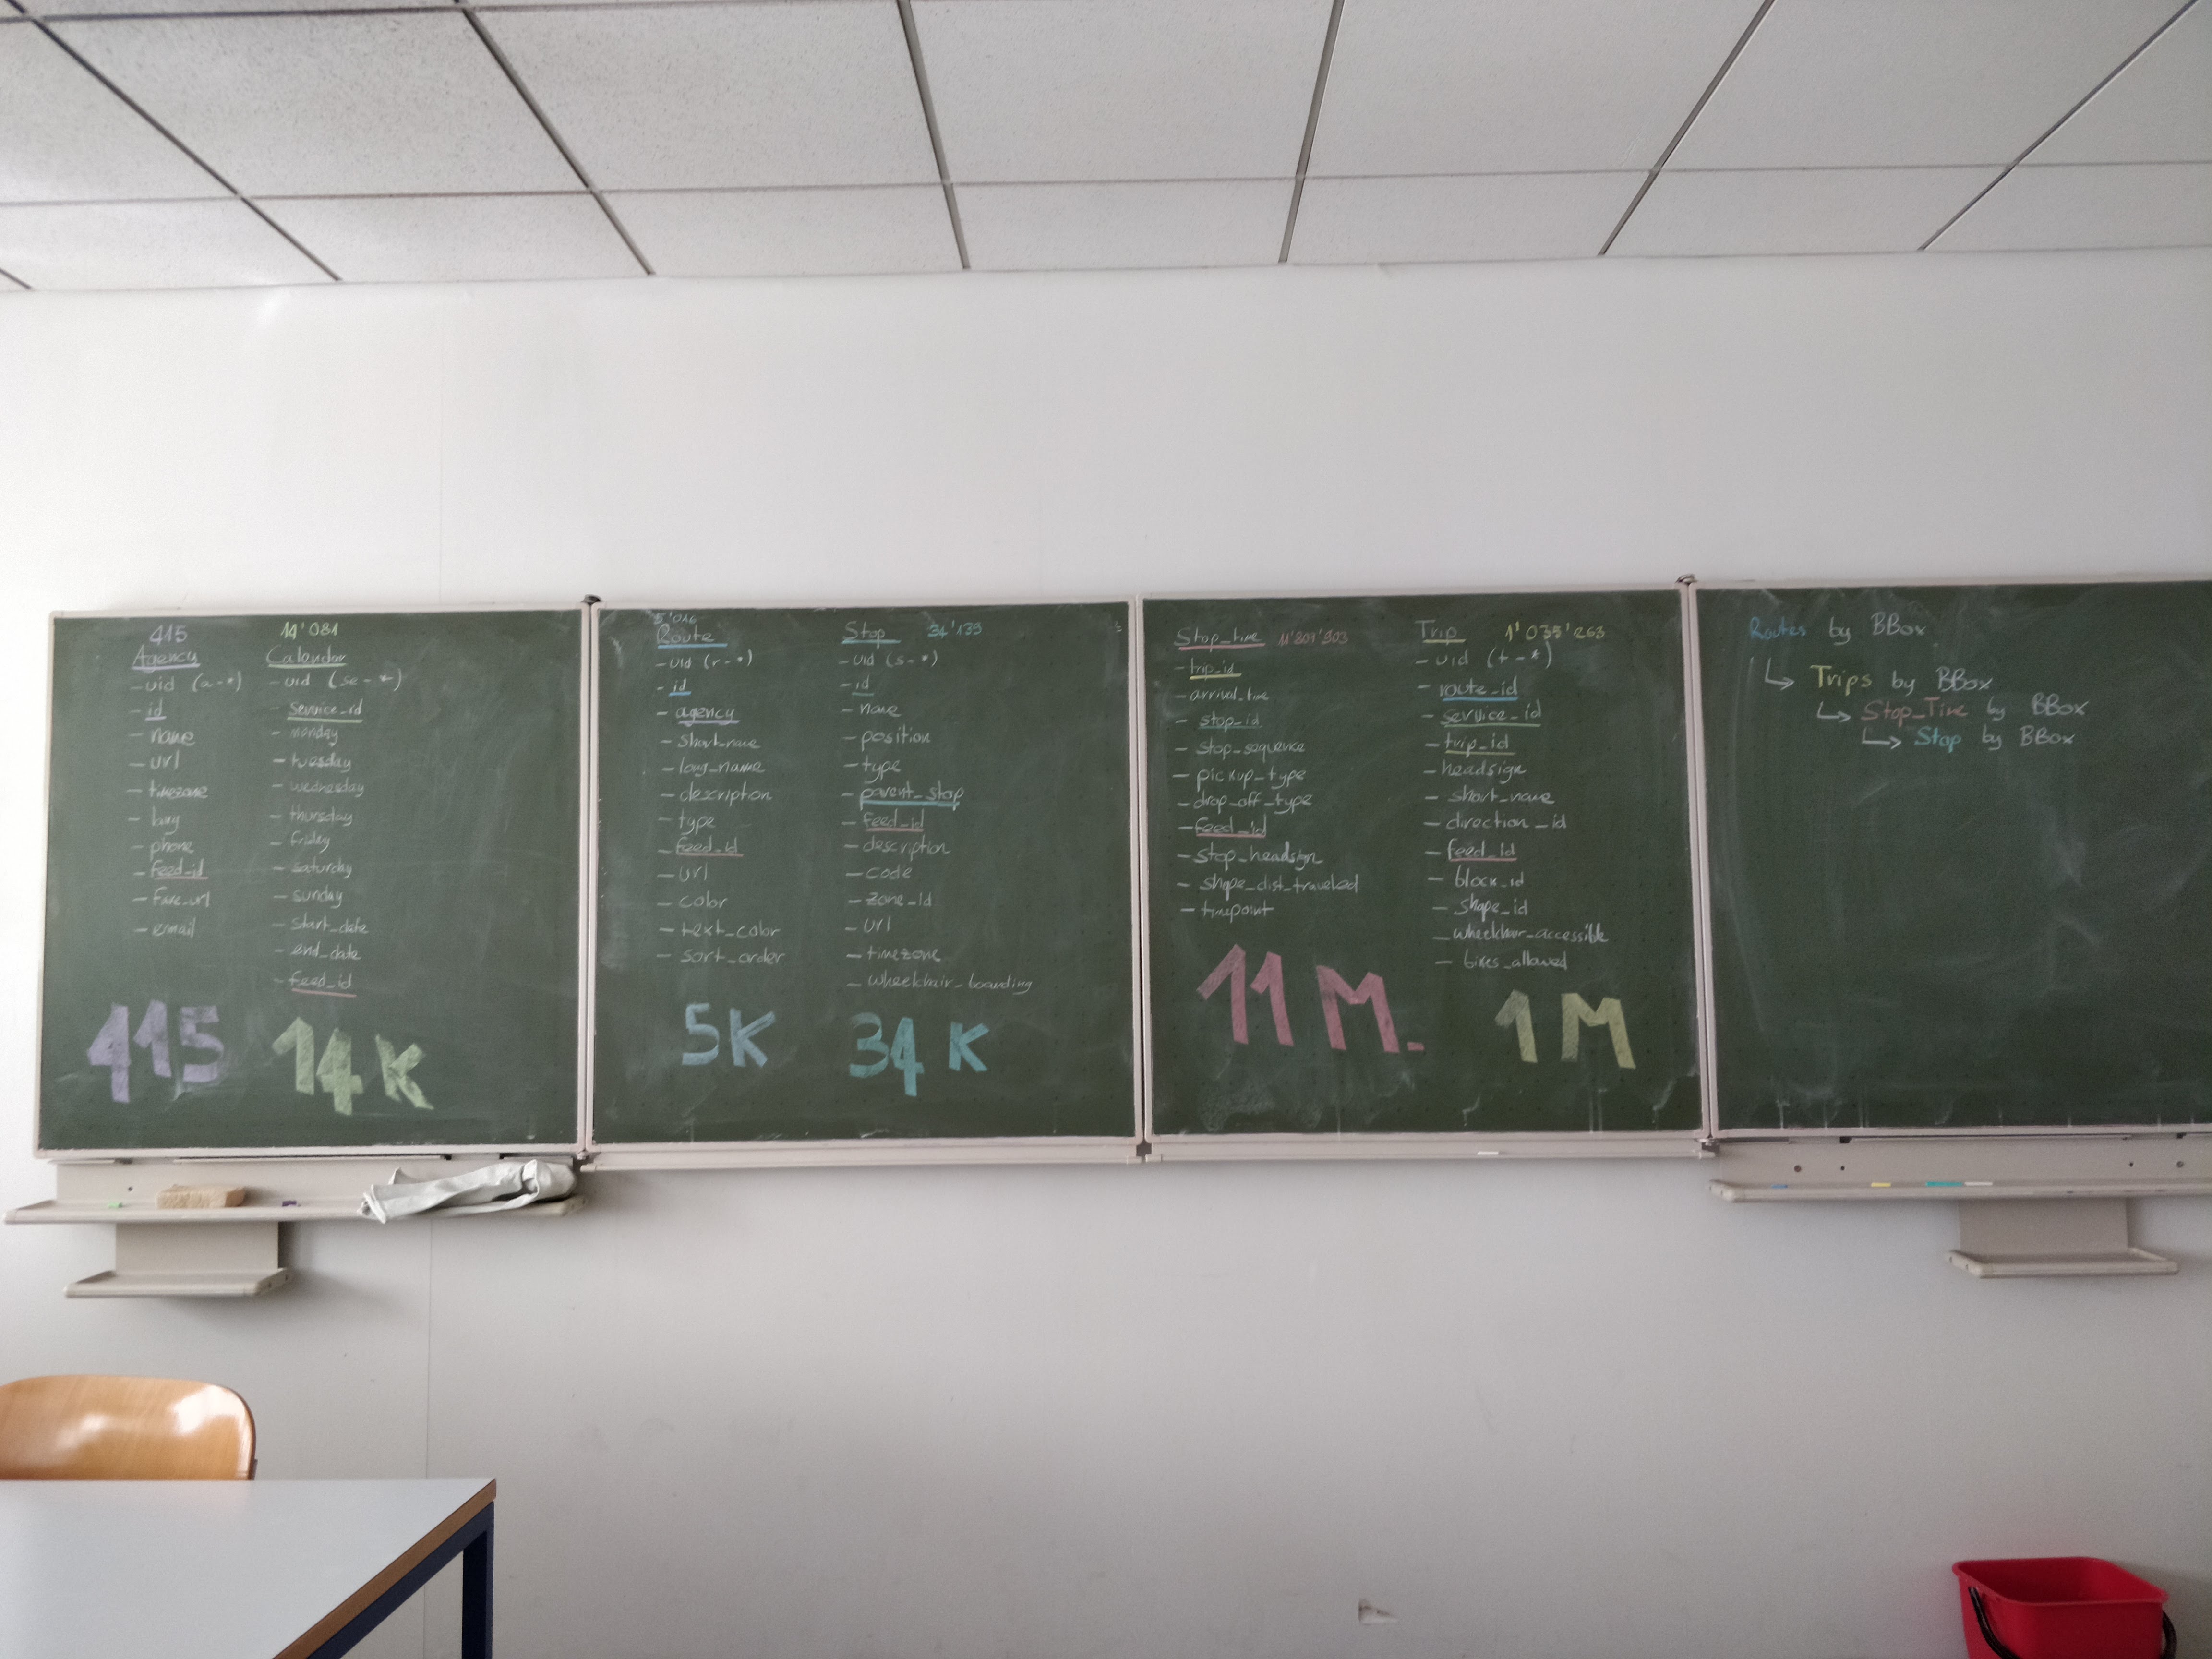 415
Agency
- uid (a-*)
- id
- name
- url
- timezone
- lang
- phone
- feed_id
- fare_url
- email
415
14'081
Calendar
- uid (se-*)
- service_id
- monday
- tuesday
- wednesday
- thursday
- friday
- saturday
- sunday
- start_date
- end_date
- feed_id
14K
5'016
Route
- uid (r-*)
- id
- agency
- short_name
- long_name
- description
- type
- feed_id
- url
- color
- text_color
- sort_order
5K
Stop 34'139
- uid (s-*)
- id
- name
- position
- type
- parent_stop
- feed_id
- description
- code
- zone_id
- url
- timezone
- wheelchair_boarding
34K
Stop_time
- trip_id
- arrival_time
- stop_id
- stop_sequence
- pickup_type
- drop_off_type
- feed_id
- stop_headsign
- shape_dist_traveled
- timepoint
11 M.
Trip 1'035'263
- uid (t-*)
- route_id
- service_id
- trip_id
- headsign
- short_name
- direction_id
- feed_id
- block_id
- shape_id
- wheelchair_accessible
- bikes_allowed
1 M
Routes by BBox
↳ Trips by BBox
↳ Stop_Time by BBox
↳ Stop by BBox